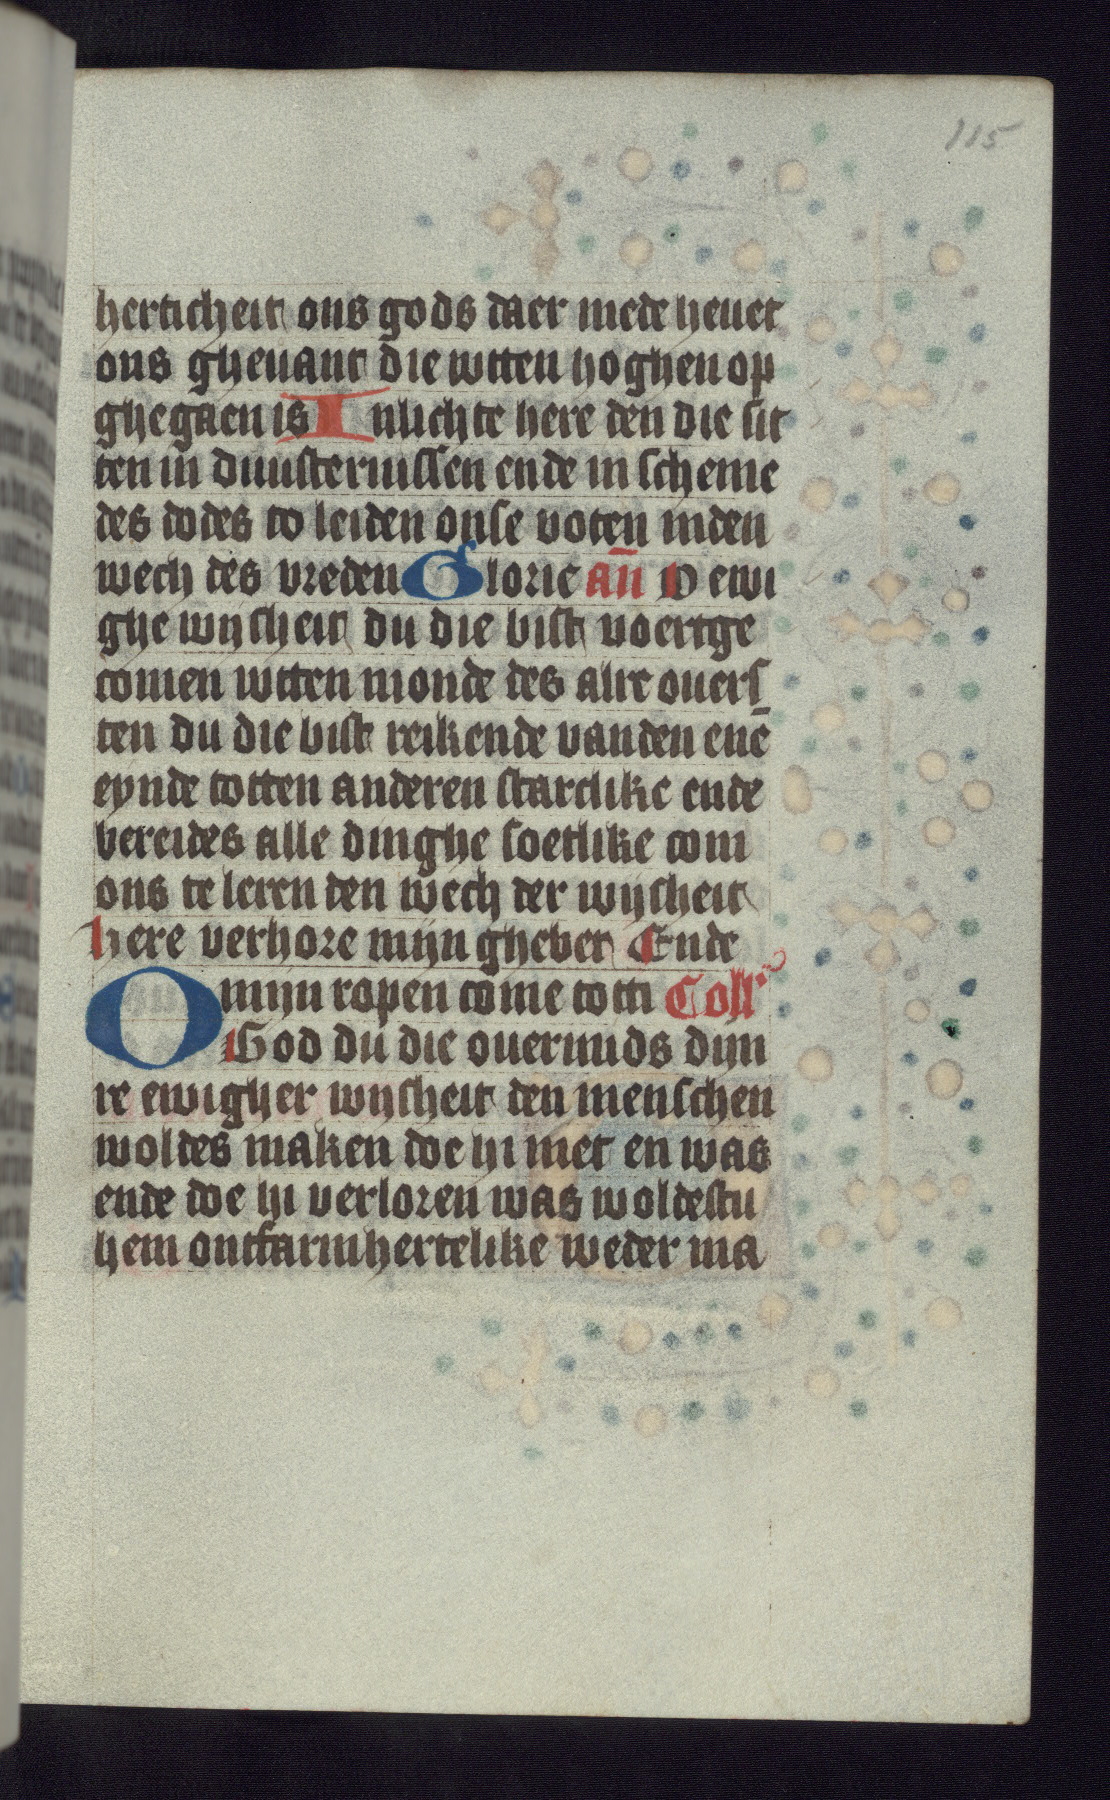 115
herticheit ons gods daer mede heuet
ons ghenant die wtten hoghen op
ghegaen is Inlichte here den die sit
ten in duusternissen ende in scheme
des dodes to leiden onse voten inden
wech des vreden Glorie an̄ O ewi
ghe wijsheit du die bist voertge
comen wtten monde des alre ouers
ten du die bist reikende vanden enē
eynde totten anderen starclike ende
bereides alle dinghe soetlike com
ons te leren den wech der wijsheit
here verhore mijn ghebet Ende
mijn ropen come totti Coll'
O God du die ouermids dijn
re ewigher wijsheit den menschen
woldes maken doe hi niet en was
ende doe hi verloren was woldestu
hem ontfarmhertelike weder ma